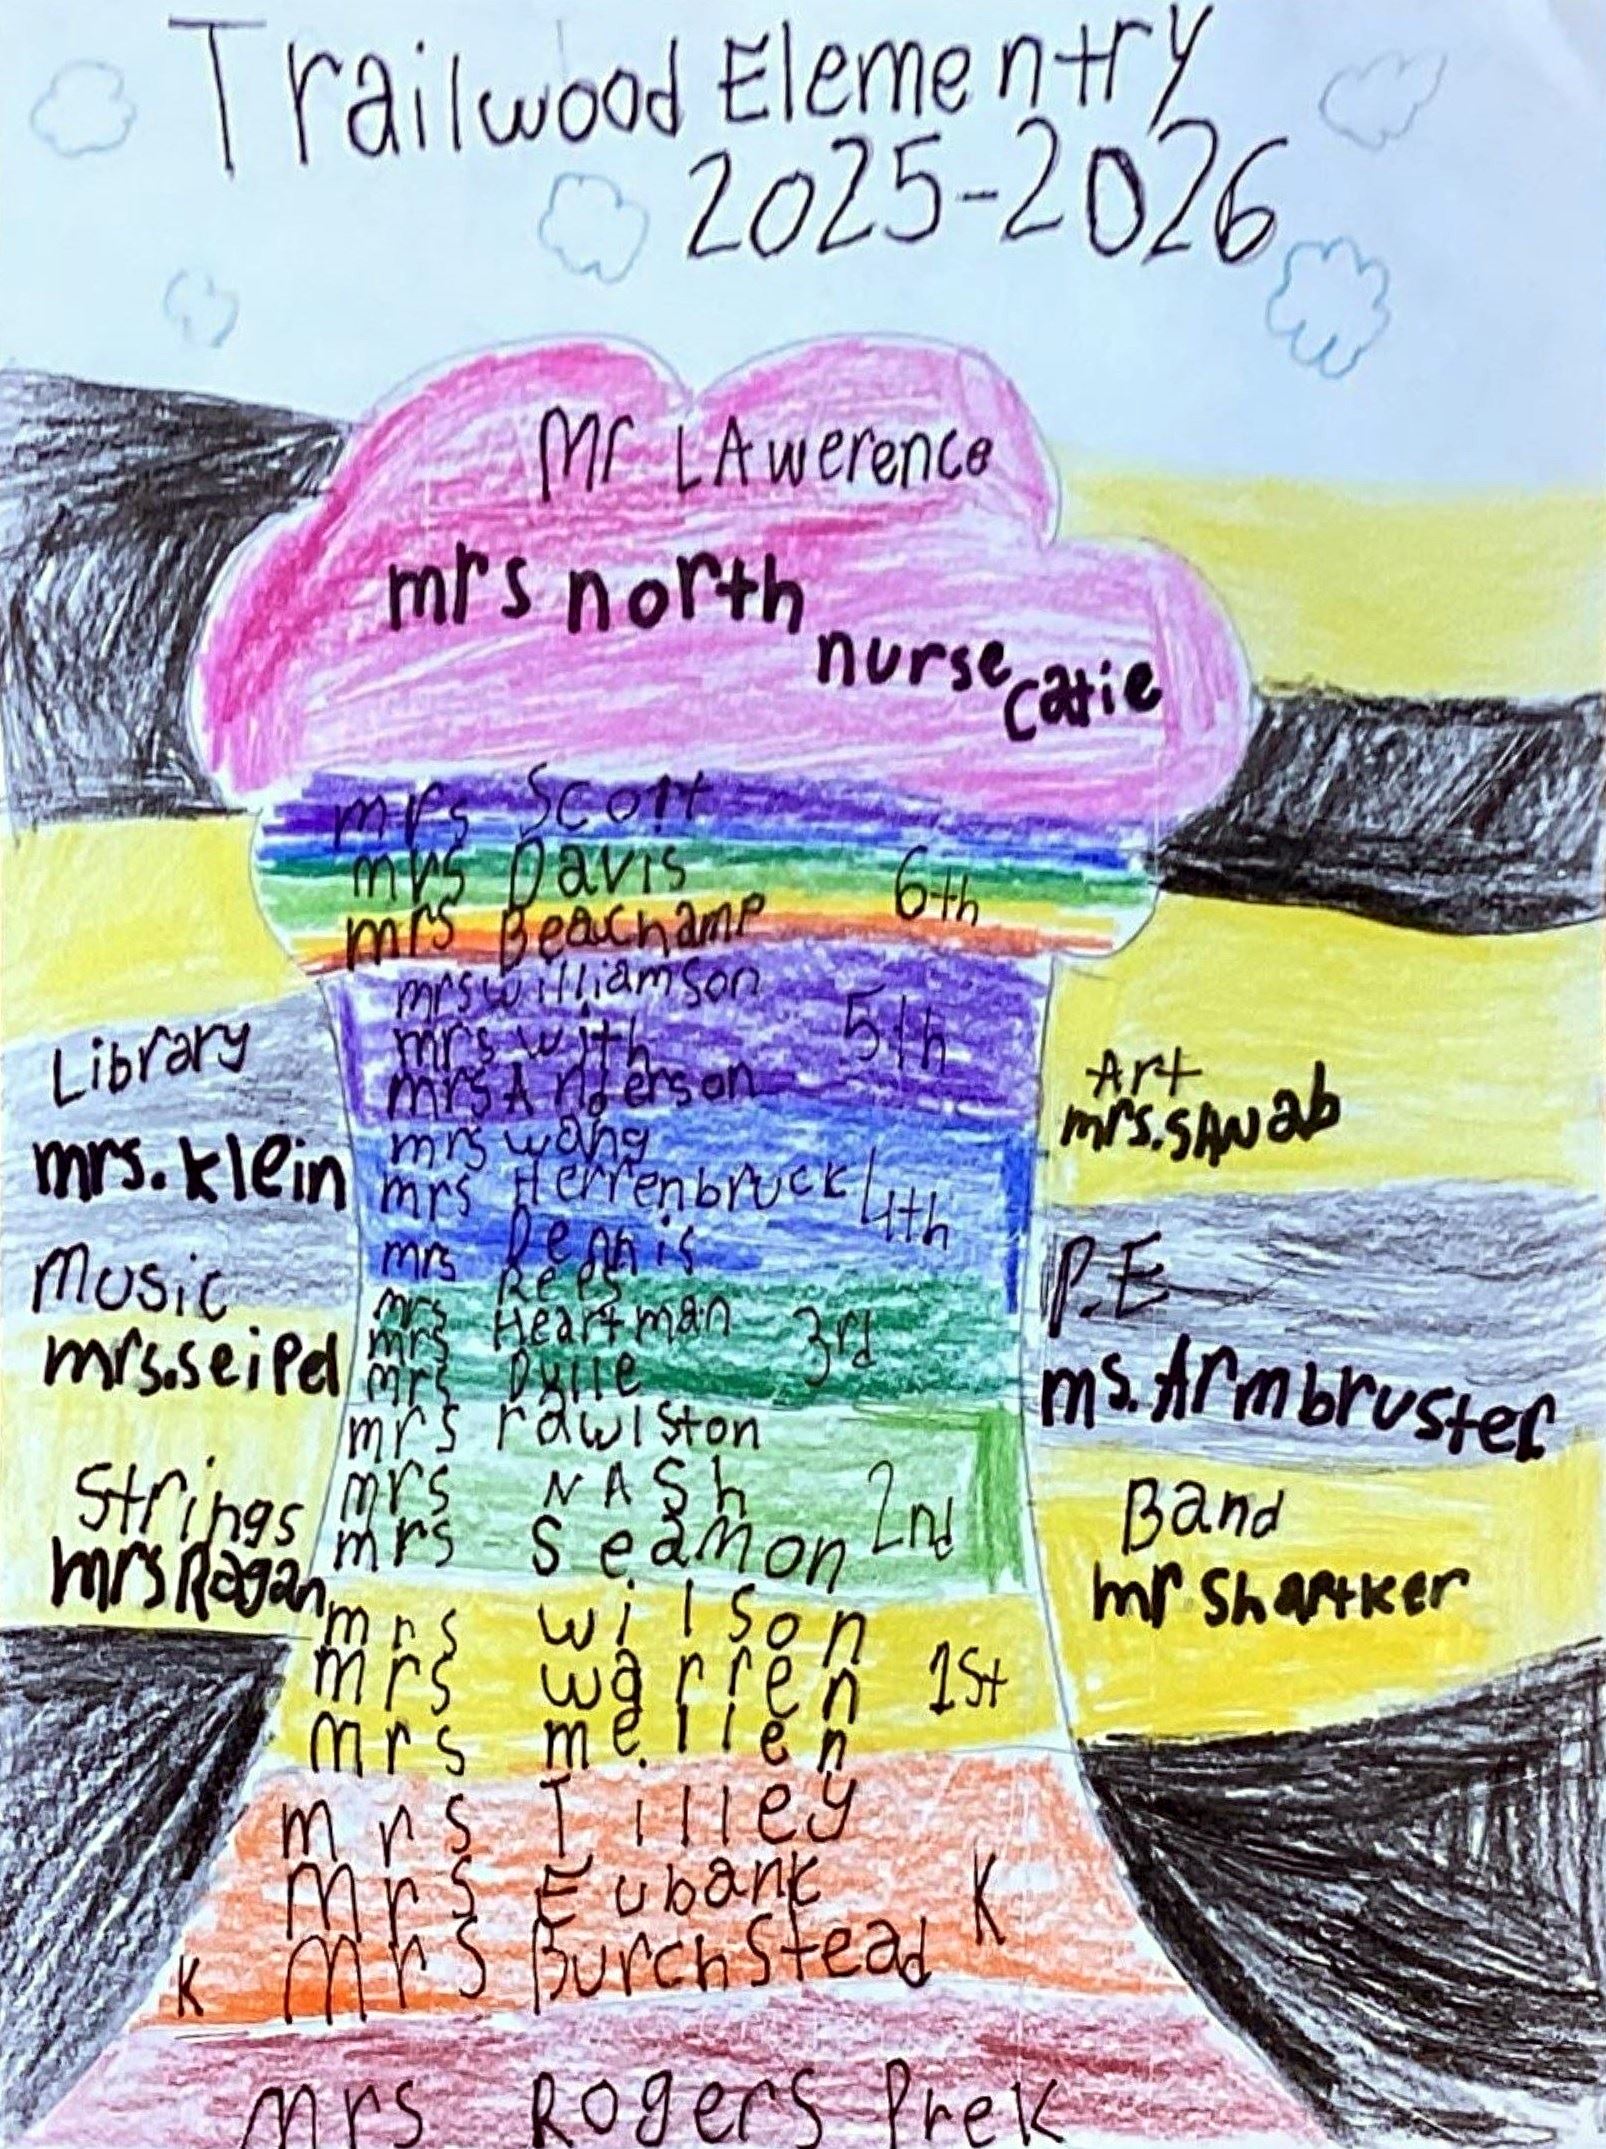 Trailwood Elementry
2025-2026
Mr LAwerence
mrs north
nurse catie
mrs Scott
mrs Davis
mrs Beachamp
6th
mrs williamson
mrs with
mrs Anderson
5th
mrs wang
mrs Herrenbruck
mrs Dennis
4th
mrs Rees
mrs Heartman
mrs
3rd
mrs rawlston
mrs NASh
mrs Seamon
2nd
mrs wilson
mrs warren
mrs mellen
1st
mrs Tilley
Mrs Eubank
K Mrs Burchstead
K
mrs Rogers PreK
Library
mrs.klein
Music
mrs.seipel
Strings
mrs Ragan
Art
mrs.SANab
P.E
ms.Armbruster
Band
mr Shartker